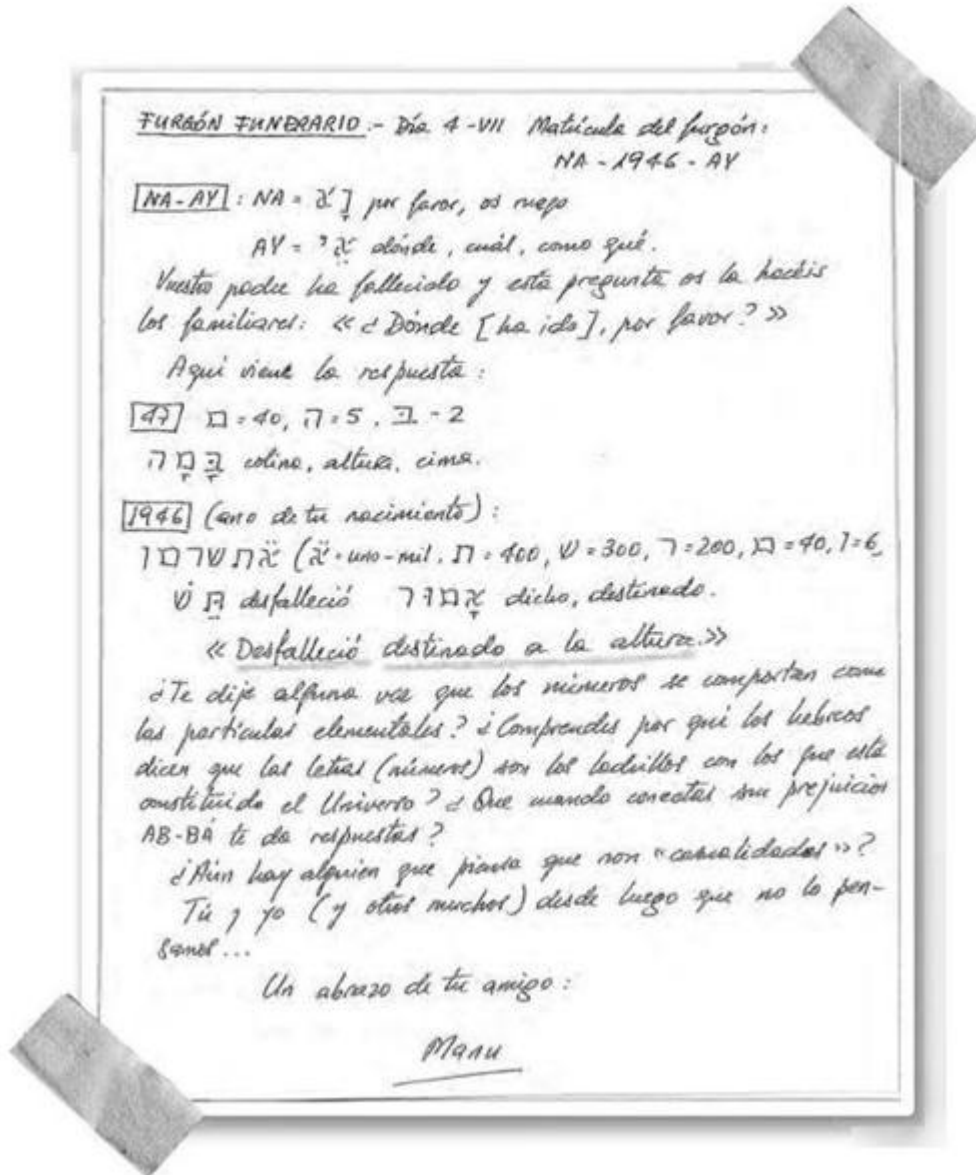 FURGÓN FUNERARIO.- Día 4-VII Matrícula del furgón:
NA-1946-AY
NA-AY: NA = נָא por favor, os ruego
AY = אֵי dónde, cuál, como qué.
Vuestro padre ha fallecido y esta pregunta os la hacéis
los familiares: «¿Dónde [ha ido], por favor?»
Aquí viene la respuesta:
47 מ=40, ה=5, ב-2
בָּמָה colina, altura, cima.
1946 (ano de tu nacimiento):
א̈תשרמו (א̈=uno-mil, ת=400, ש=300, ר=200, מ=40, ו=6,
תֵּשׁ desfalleció אָמוּר dicho, destinado.
«Desfalleció destinado a la altura.»
¿Te dije alguna vez que los números se comportan como
las partículas elementales? ¿Comprendes por qué los hebreos
dicen que las letras (números) son los ladrillos con los que está
constituido el Universo? ¿Que cuando conectas sin prejuicios
AB-BÁ te da respuestas?
¿Aún hay alguien que piensa que son "casualidades"?
Tú y yo (y otros muchos) desde luego que no lo pen-
samos...
Un abrazo de tu amigo:
Manu